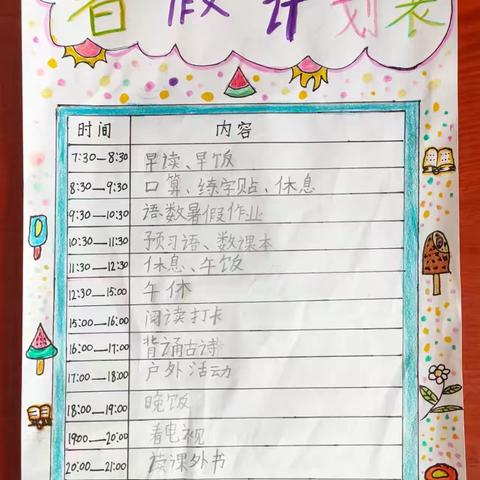 暑假计划表
时间 内容
7:30—8:30 早读、早饭
8:30—9:30 口算、练字贴、休息
9:30—10:30 语数暑假作业
10:30—11:30 预习语、数课本
11:30—12:30 休息、午饭
12:30—15:00 午休
15:00—16:00 阅读打卡
16:00—17:00 背诵古诗
17:00—18:00 户外活动
18:00—19:00 晚饭
1900—20:00 看电视
20:00—21:00 读课外书